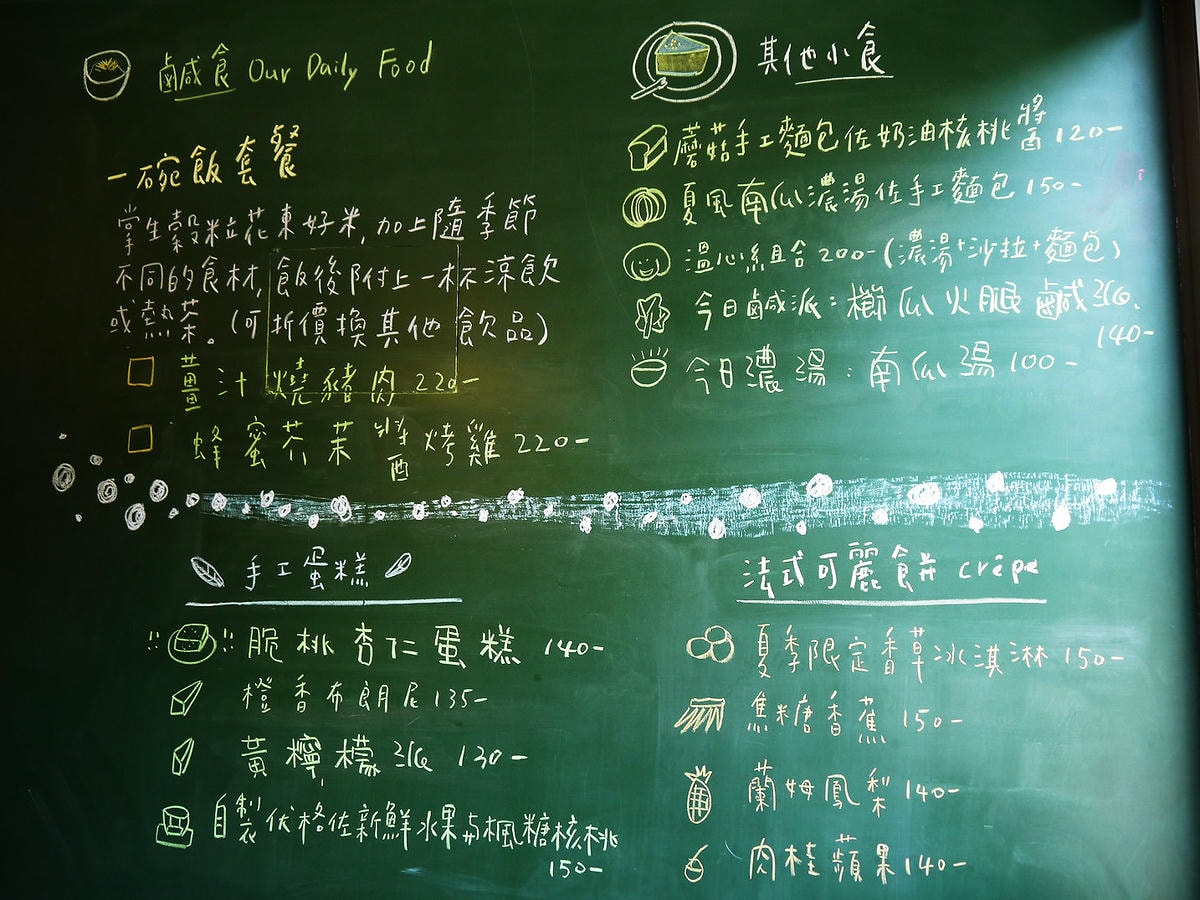 鹹食 Our Daily Food
一碗飯套餐
掌生穀粒花東好米,加上隨季節
不同的食材,飯後附上一杯涼飲
或熱茶。(可折價換其他飲品)
薑汁燒豬肉 220-
蜂蜜芥茉醬烤雞 220-
其他小食
蘑菇手工麵包佐奶油核桃醬 120-
夏風南瓜濃湯佐手工麵包 150-
溫心組合 200-(濃湯+沙拉+麵包)
今日鹹派:櫛瓜火腿鹹派.
140-
今日濃湯:南瓜湯 100-
手工蛋糕
脆桃杏仁蛋糕 140-
橙香布朗尼 135-
黃檸檬派 130-
自製优格佐新鮮水果与楓糖核桃
150-
法式可麗餅 crêpe
夏季限定香草冰淇淋 150-
焦糖香蕉 150-
蘭姆鳳梨 140-
肉桂蘋果 140-